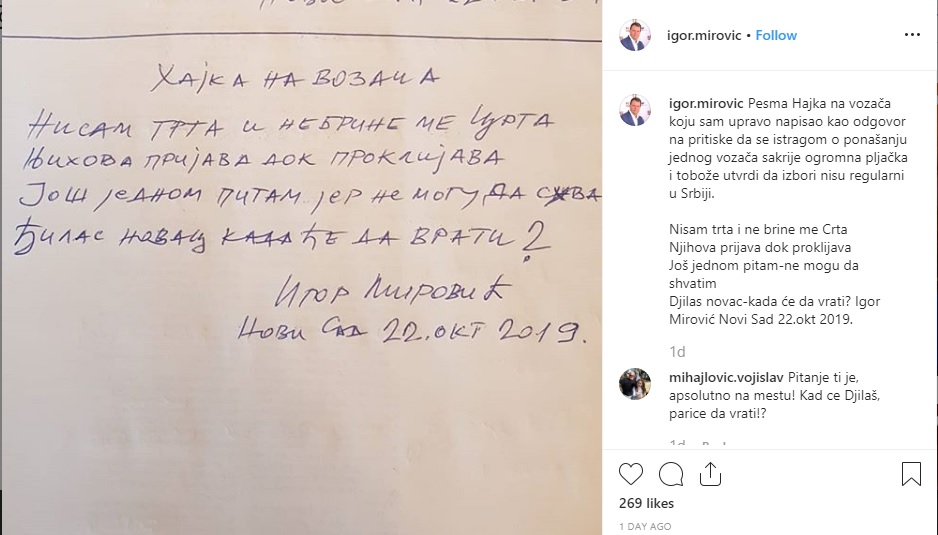 Хајка на возача
Нисам трта и небрине ме Црта
Њихова пријава док проклијава
Још једном питам јер не могу да схва
Ђилас новац када ће да врати?
Игор Мировић
Нови Сад 22.окт 2019.
igor.mirovic • Follow
igor.mirovic Pesma Hajka na vozača
koju sam upravo napisao kao odgovor
na pritiske da se istragom o ponašanju
jednog vozača sakrije ogromna pljačka
i tobože utvrdi da izbori nisu regularni
u Srbiji.
Nisam trta i ne brine me Crta
Njihova prijava dok proklijava
Još jednom pitam-ne mogu da
shvatim
Djilas novac-kada će da vrati? Igor
Mirović Novi Sad 22.okt 2019.
1d
mihajlovic.vojislav Pitanje ti je,
apsolutno na mestu! Kad ce Djilaš,
parice da vrati!?
1d
269 likes
1 DAY AGO